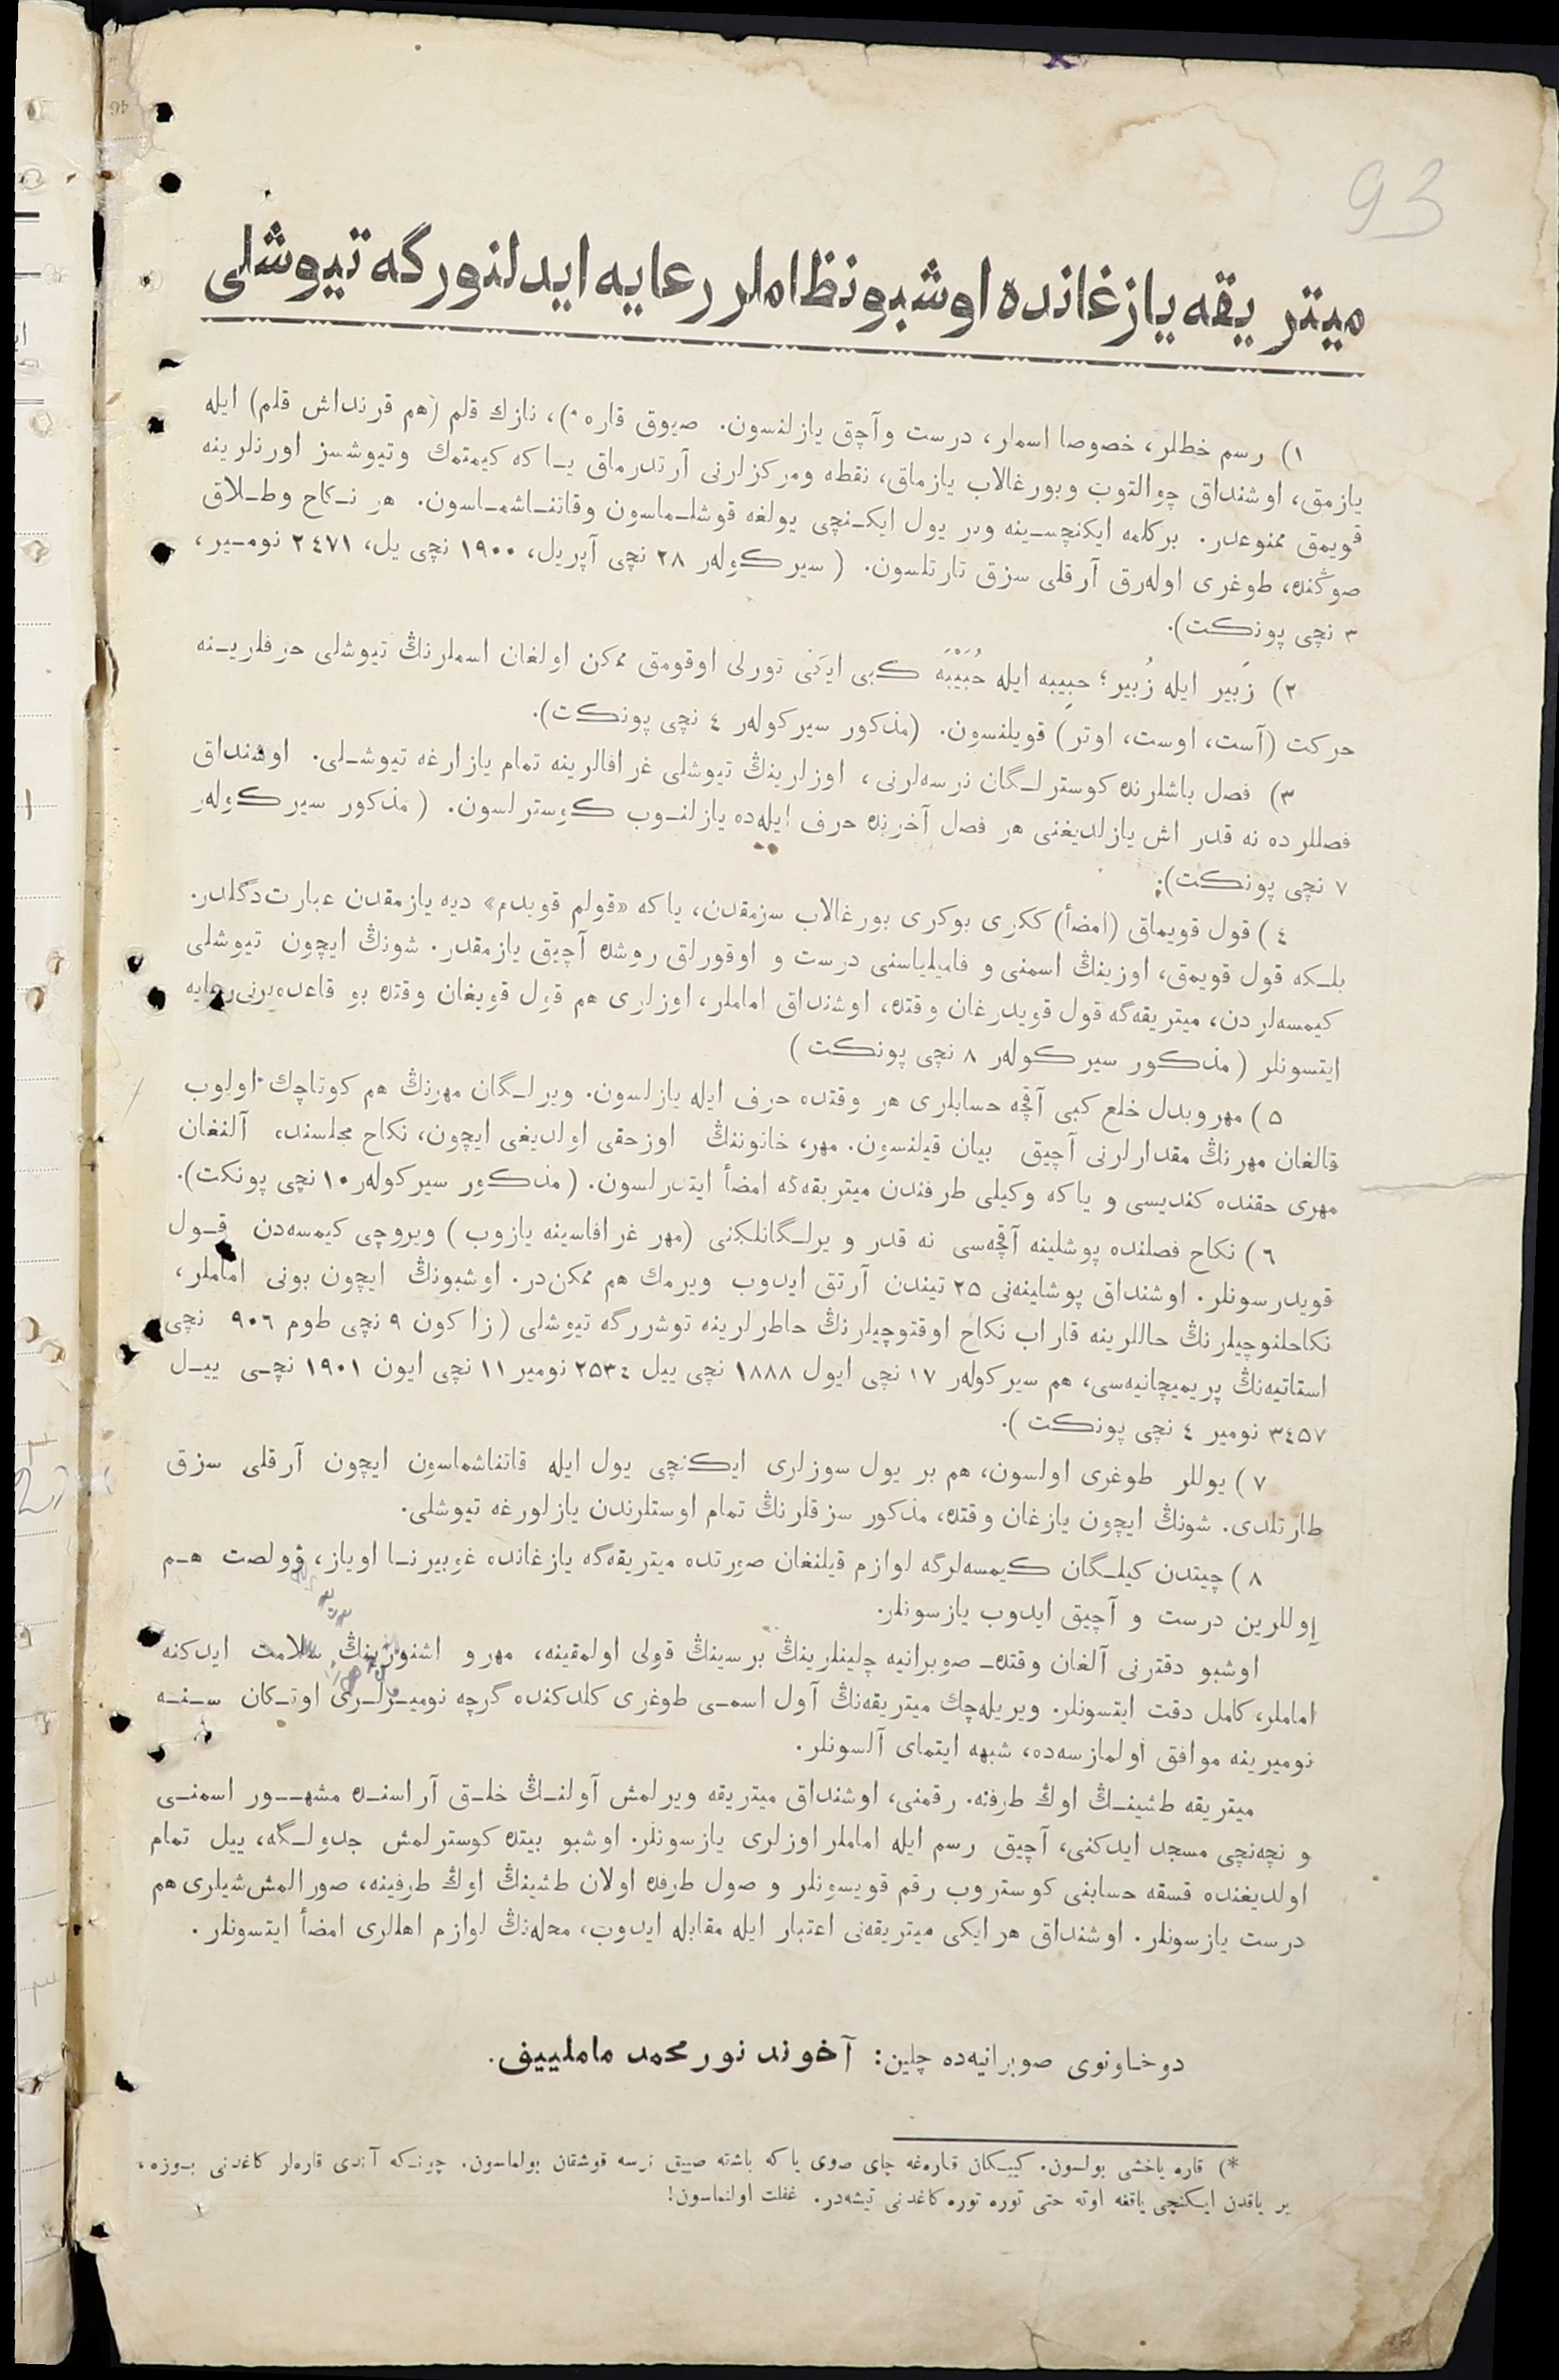 93
ميتريقه يازغانده اوشبو نظاملر رعايه ايدلنورگه تيوشلى
١) رسم خطلر، خصوصا اسملر، درست وآچق يازلنسون. صيوق قاره *)، نازك قلم (هم قرنداش قلم) ايله
يازمق، اوشنداق چوالتوب وبورغالاب يازماق، نقطه ومركزلرنى آرتدرماق يـاكه كيمتمك وتيوشسز اورنلرينه
قويمق ممنوعدر. بركلمه ايكنچسـينه وبر يول ايكـنچى يولغه قوشلـماسون وقاتنـاشمـاسون. هر نـكاح وطـلاق
صوڭنده، طوغرى اولەرق آرقلى سزق تارتلسون. (سيركولەر ٢٨ نچى آپريل، ١٩٠٠ نچى يل، ٢٤٧١ نومـير،
٣ نچى پونكت).
٢) زَبير ايله زُبير؛ حبِيبه ايله حُبَيْبَه كبى ايكى تورلى اوقومق ممكن اولغان اسملرنڭ تيوشلى حرفلريـنه
حركت (آست، اوست، اوتر) قويلنسون. (مذكور سيركولەر ٤ نچى پونكت).
٣) فصل باشلرنده كوسترلـگان نرسەلرنى، اوزلرينڭ تيوشلى غرافالرينه تمام يازارغه تيوشـلى. اوشنداق
فصللرده نه قدر اش يازلديغنى هر فصل آخرنده حرف ايلەده يازلنـوب كوسترلسون. (مذكور سيركولەر
٧ نچى پونكت).
٤) قول قويماق (امضأ) ككرى بوكرى بورغالاب سزمقدن، ياكه «قولم قويدم» ديه يازمقدن عبارت دگلدر.
بلـكه قول قويمق، اوزينڭ اسمنى و فاميلياسنى درست و اوقورلق روشده آچيق يازمقدر. شونڭ ايچون تيوشلى
كيمسەلردن، ميتريقەگه قول قويدرغان وقتده، اوشنداق اماملر، اوزلرى هم قول قويغان وقتده بو قاعدەيرنى رعايه
ايتسونلر (مذكور سيركولەر ٨ نچى پونكت)
٥) مهر وبدل خلع كبى آقچه حسابلرى هر وقتده حرف ايله يازلسون. ويرلـگان مهرنڭ هم كوتاچك اولوب
قالغان مهرنڭ مقدارلرنى آچيق بيان قيلنسون. مهر، خاتوننڭ اوزحقى اولديغى ايچون، نكاح مجلسنده آلنغان
مهرى حقنده كنديسى و ياكه وكيلى طرفندن ميتريقەگه امضأ ايتدرلسون. (مذكور سيركولەر ١٠ نچى پونكت).
٦) نكاح فصلنده پوشلينه آقچەسى نه قدر ويرلـگانلكنى (مهر غرافاسينه يازوب) ويروچى كيمسەدن قـول
قويدرسونلر. اوشنداق پوشلينەنى ٢٥ تيندن آرتق ايدوب ويرمك هم ممكن‌در. اوشبونڭ ايچون بونى اماملر،
نكاحلنوچيلرنڭ حاللرينه قاراب نكاح اوقتوچيلرنڭ خاطرلرينه توشررگه تيوشلى (زاكون ٩ نچى طوم ٩٠٦ نچى
استاتيەنڭ پريميچانيەسى، هم سيركولەر ١٧ نچى ايول ١٨٨٨ نچى ييل ٢٥٣٤ نومير ١١ نچى ايون ١٩٠١ نچـى ييـل
٣٤٥٧ نومير ٤ نچى پونكت).
٧) يوللر طوغرى اولسون، هم بر يول سوزلرى ايكنچى يول ايله قاتناشماسون ايچون آرقلى سزق
طارتلدى. شونڭ ايچون يازغان وقتده، مذكور سزقلرنڭ تمام اوستلرندن يازلورغه تيوشلى.
٨) چيتدن كيلـگان كيمسەلرگه لوازم قيلنغان صورتده ميتريقەگه يازغانده غوبيرنـا اوياز، ۋولصت هـم
اوللرين درست و آچيق ايدوب يازسونلر.
اوشبو دفترنى آلغان وقتده صوبرانيه چلينلرينڭ برسينڭ قولى اولمقينه، مهر و اشنورينڭ سلامت ايدكنه
اماملر، كامل دقت ايتسونلر. ويريلەچك ميتريقەنڭ آول اسمـى طوغرى كلدكنده گرچه نوميـرلـرى اوتـكان سـنـه
نوميرينه موافق اولمازسەده، شبهه ايتماى آلسونلر.
ميتريقه طشينـڭ اوڭ طرفنه. رقمنى، اوشنداق ميتريقه ويرلمش آولنـڭ خلـق آراسنـده مشهـور اسمنـى
و نچەنچى مسجد ايدكنى، آچيق رسم ايله اماملر اوزلرى يازسونلر. اوشبو بيتده كوسترلمش جدولـگه، ييل تمام
اولديغنده قسقه حسابنى كوستروب رقم قويسونلر و صول طرفده اولان طشينڭ اوڭ طرفينه، صورالمش شيلرى هم
درست يازسونلر. اوشنداق هر ايكى ميتريقەنى اعتبار ايله مقابله ايدوب، محلەنڭ لوازم اهللرى امضأ ايتسونلر.
دوخاونوى صوبرانيەده چلين: آخوند نورمحمد مامليیف.
*) قاره ياخشى بولسون. كيبـكان قارەغه چاى صوى ياكه باشقه صييق نرسه قوشقان بولماسون. چونـكه آندى قارەلر كاغدنى بـوزه،
بر ياقدن ايـكنچى ياققه اوته حتى توره توره كاغدنى تيشەدر. غفلت اولنماسون!